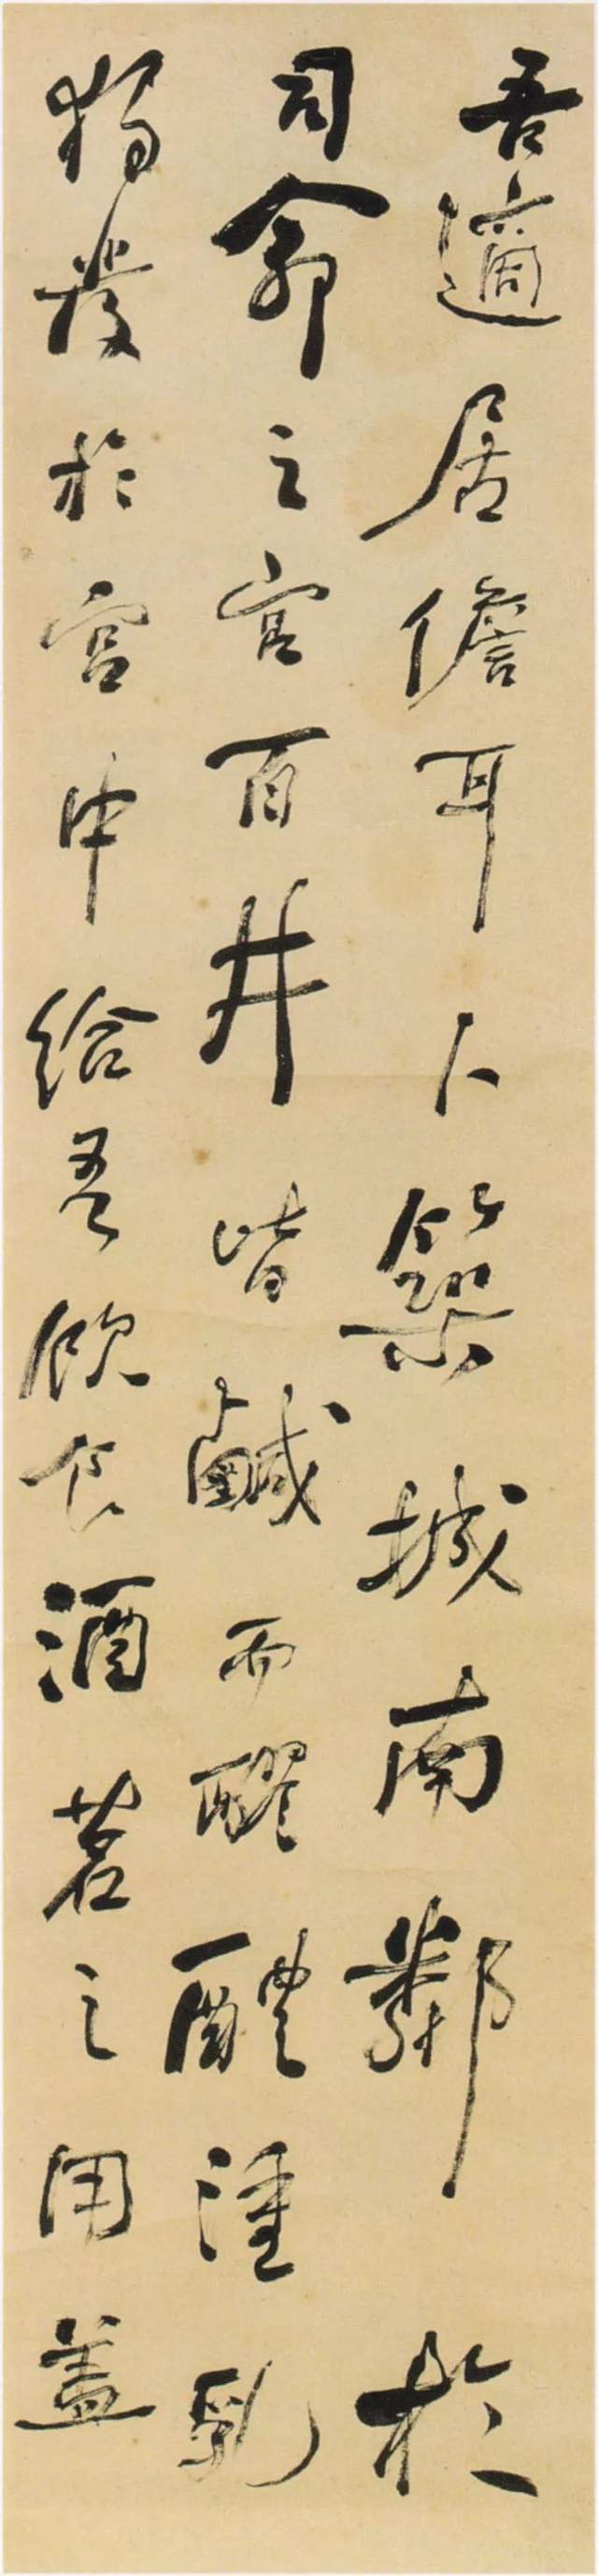 吾適居儋耳卜築城南鄰於
司命之宮百井皆鹹而醪醴湩乳
獨發於宮中給吾飲食酒茗之用蓋